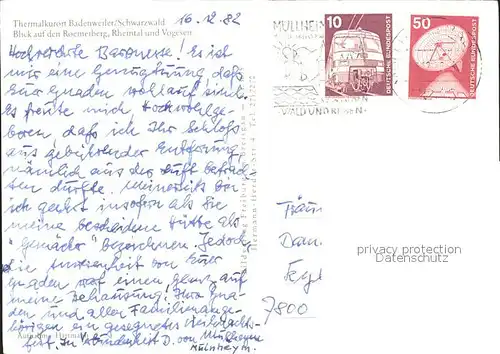 Thermalkurort Badenweiler/Schwarzwald
Blick auf den Roemerberg, Rheintal und Vogesen
16.12.82
Hochverehrte Baronesse! Es ist
mir eine Genugthung daß
Euer Gnaden wohlauf sind.
Es freute mich Hochwohlge-
boren daß ich Ihr Schloß
aus gebührender Entfernung,
nämlich aus der Luft betrach-
ten durfte. Meinerseits bin
ich geehrt insofern als Sie
meine bescheidene Hütte als
"Gemäcker" bezeichnen. Jedoch,
die Anwesenheit von Euer
Gnaden warf einen Glanz auf
meine Behausung! Ihro Gna-
den und allen Familienange-
hörigen ein gesegnetes Weihnachts-
fest. In Verbundenheit D. von
Müllheym
MÜLLHEIM
WALD UND REBEN
10
DEUTSCHE BUNDESPOST
50
DEUTSCHE BUNDESPOST
7800
privacy protection
Datenschutz